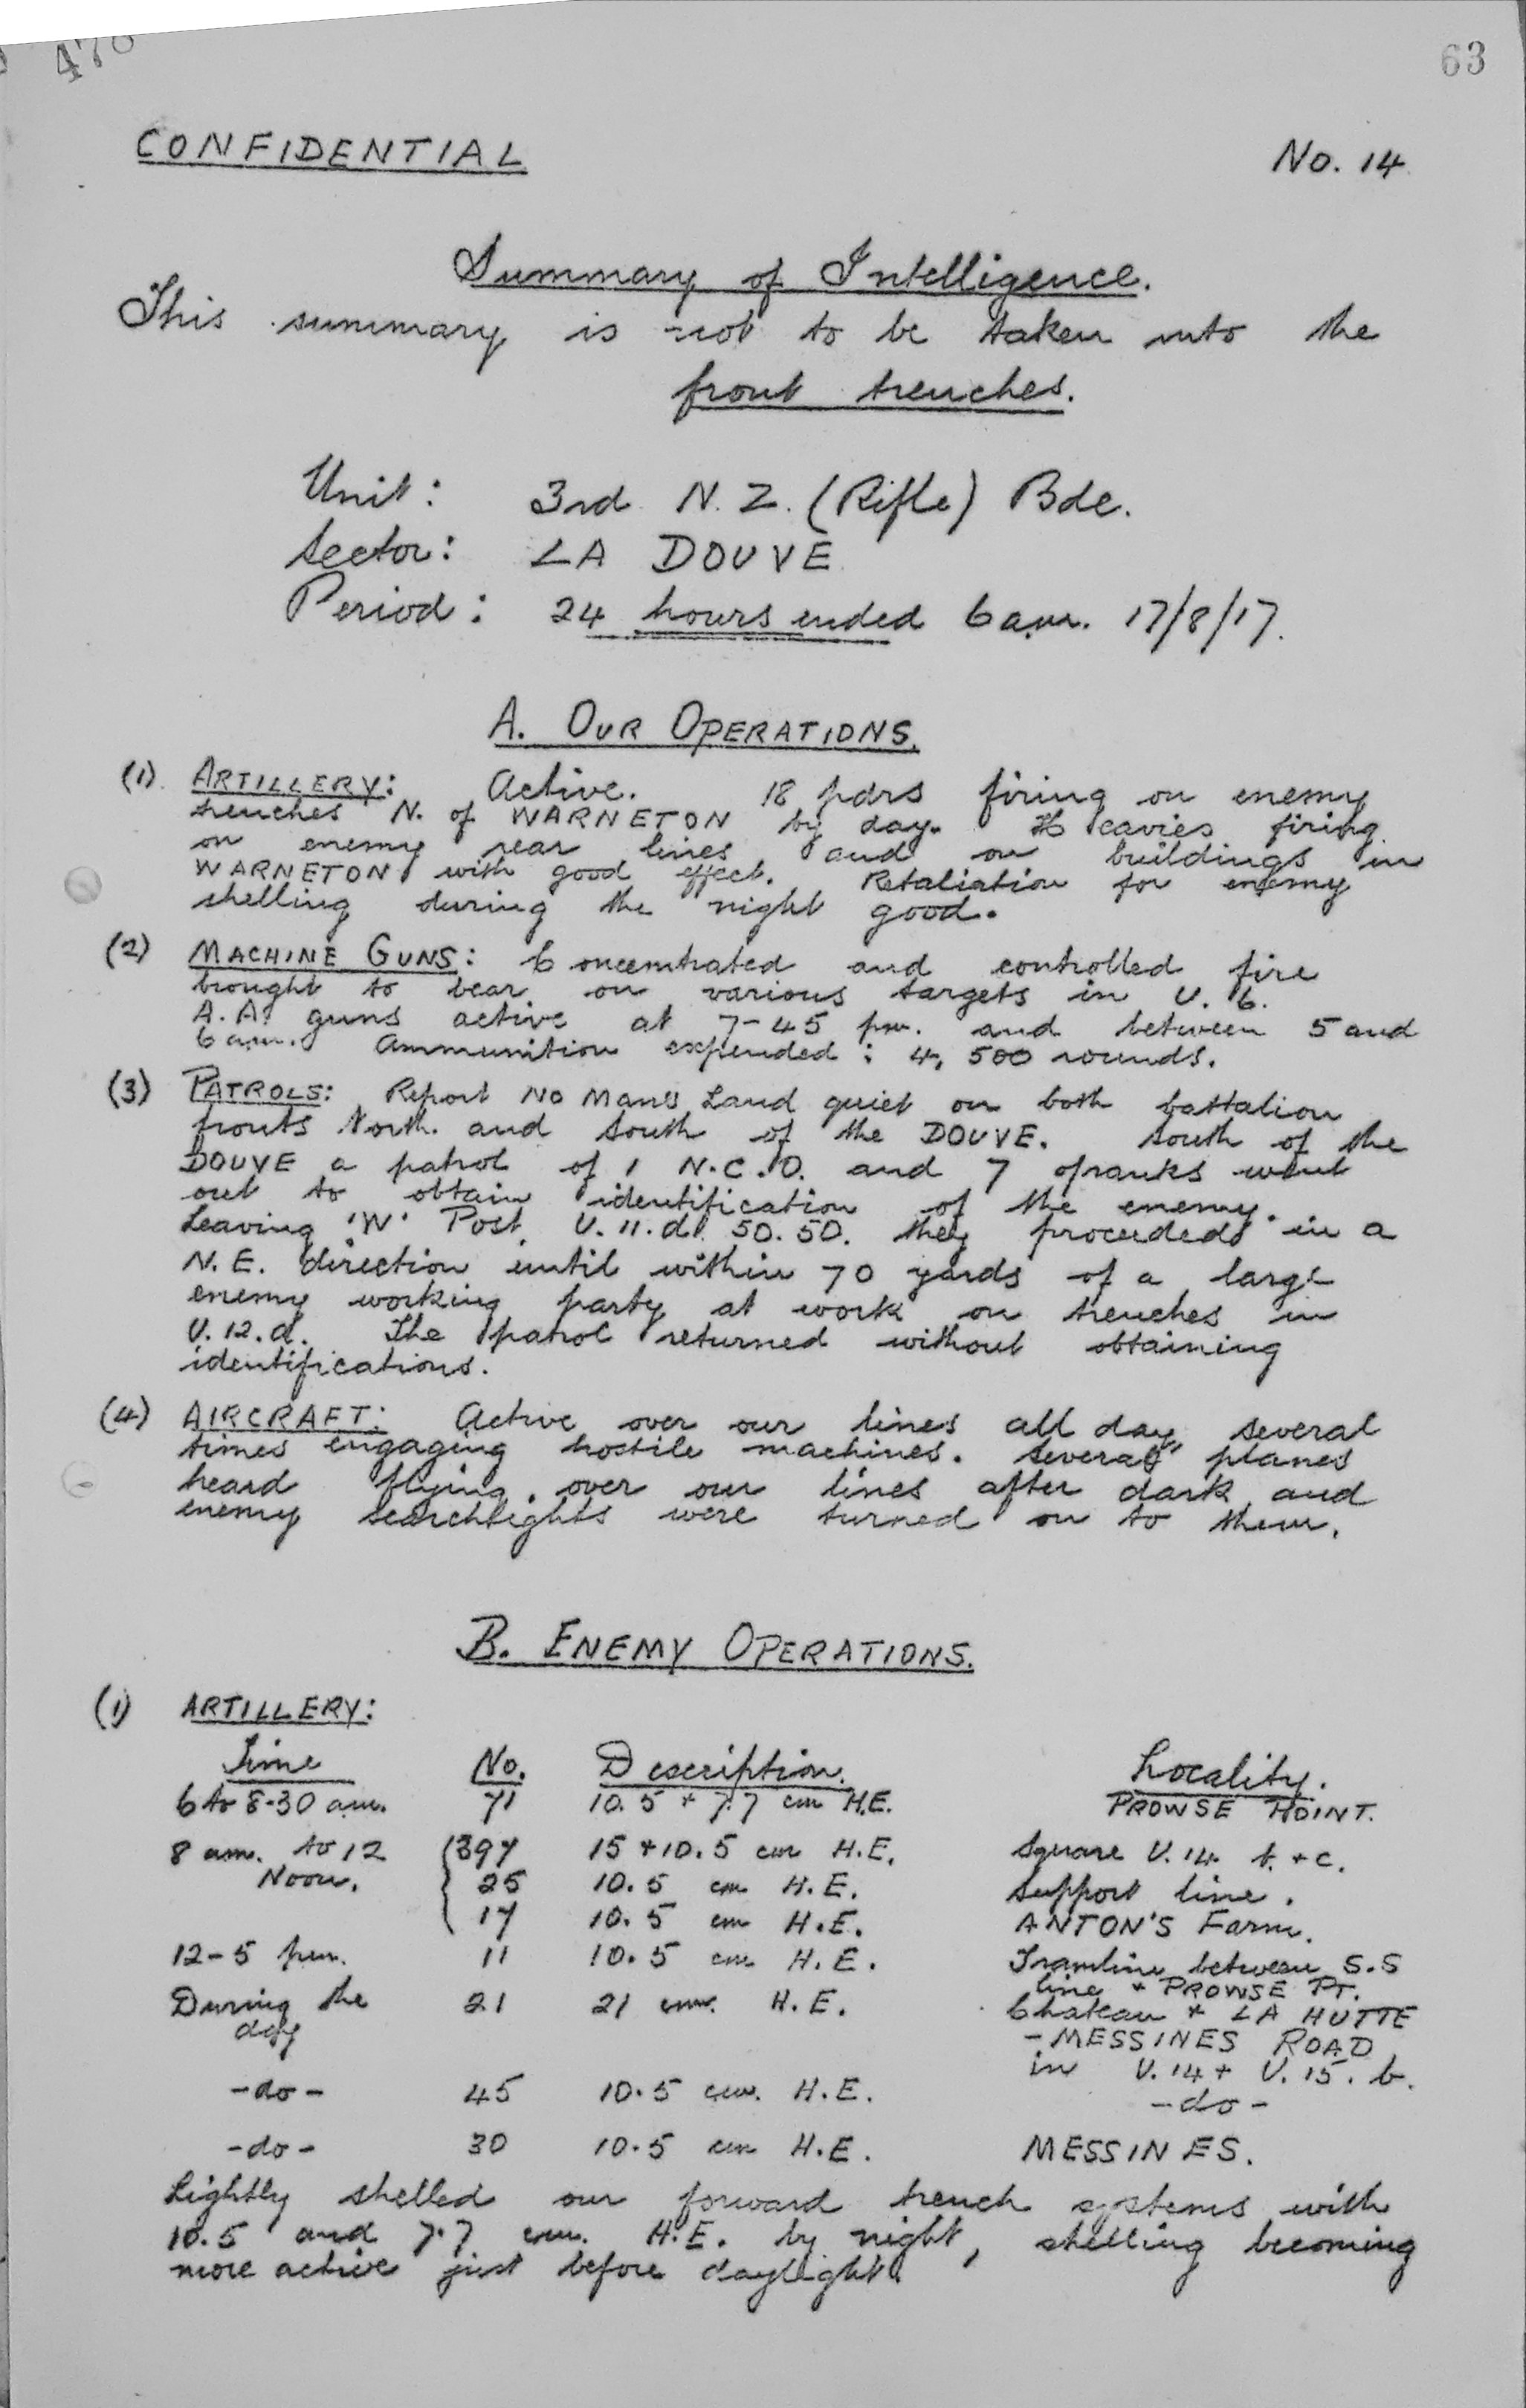 63
CONFIDENTIAL
No. 14
Summary of Intelligence.
This summary is not to be taken into the
front trenches.
Unit: 3rd N.Z. (Rifle) Bde.
Sector: LA DOUVE
Period: 24 hours ended 6 a.m. 17/8/17.
A. OUR OPERATIONS.
(1) ARTILLERY: Active. 18 pdrs firing on enemy
trenches N. of WARNETON by day. Heavies firing
on enemy rear lines and on buildings in
WARNETON with good effect. Retaliation for enemy
shelling during the night good.
(2) MACHINE GUNS: Concentrated and controlled fire
brought to bear on various targets in U. 6.
A.A. guns active at 7-45 pm. and between 5 and
6 a.m. Ammunition expended: 4,500 rounds.
(3) PATROLS: Report No Mans Land quiet on both battalion
fronts North and South of the DOUVE. South of the
DOUVE a patrol of 1 N.C.O. and 7 ofranks went
out to obtain identification of the enemy.
Leaving 'W' Post U.11.d. 50.50. they proceeded in a
N.E. direction until within 70 yards of a large
enemy working party at work on trenches in
U.12.d. The patrol returned without obtaining
identifications.
(4) AIRCRAFT: Active over our lines all day, several
times engaging hostile machines. Several planes
heard flying over our lines after dark and
enemy searchlights were turned on to them.
B. ENEMY OPERATIONS.
(1) ARTILLERY:
Time No. Description. Locality.
6 to 8-30 a.m. 71 10.5 + 7.7 cm H.E. PROWSE POINT.
8 am. to 12 397 15 + 10.5 cm H.E. Square U.14 b. + c.
Noon. 25 10.5 cm H.E. Support line.
17 10.5 cm H.E. ANTON'S Farm.
12-5 pm. 11 10.5 cm H.E. Tramline between S.S
line + PROWSE PT.
During the 21 21 cm. H.E. Chateau + LA HUTTE
day - MESSINES ROAD
in U.14 + U.15.b.
-do- 45 10.5 cm. H.E. -do-
-do- 30 10.5 cm H.E. MESSINES.
Lightly shelled our forward trench systems with
10.5 and 7.7 cm. H.E. by night, shelling becoming
more active just before daylight.